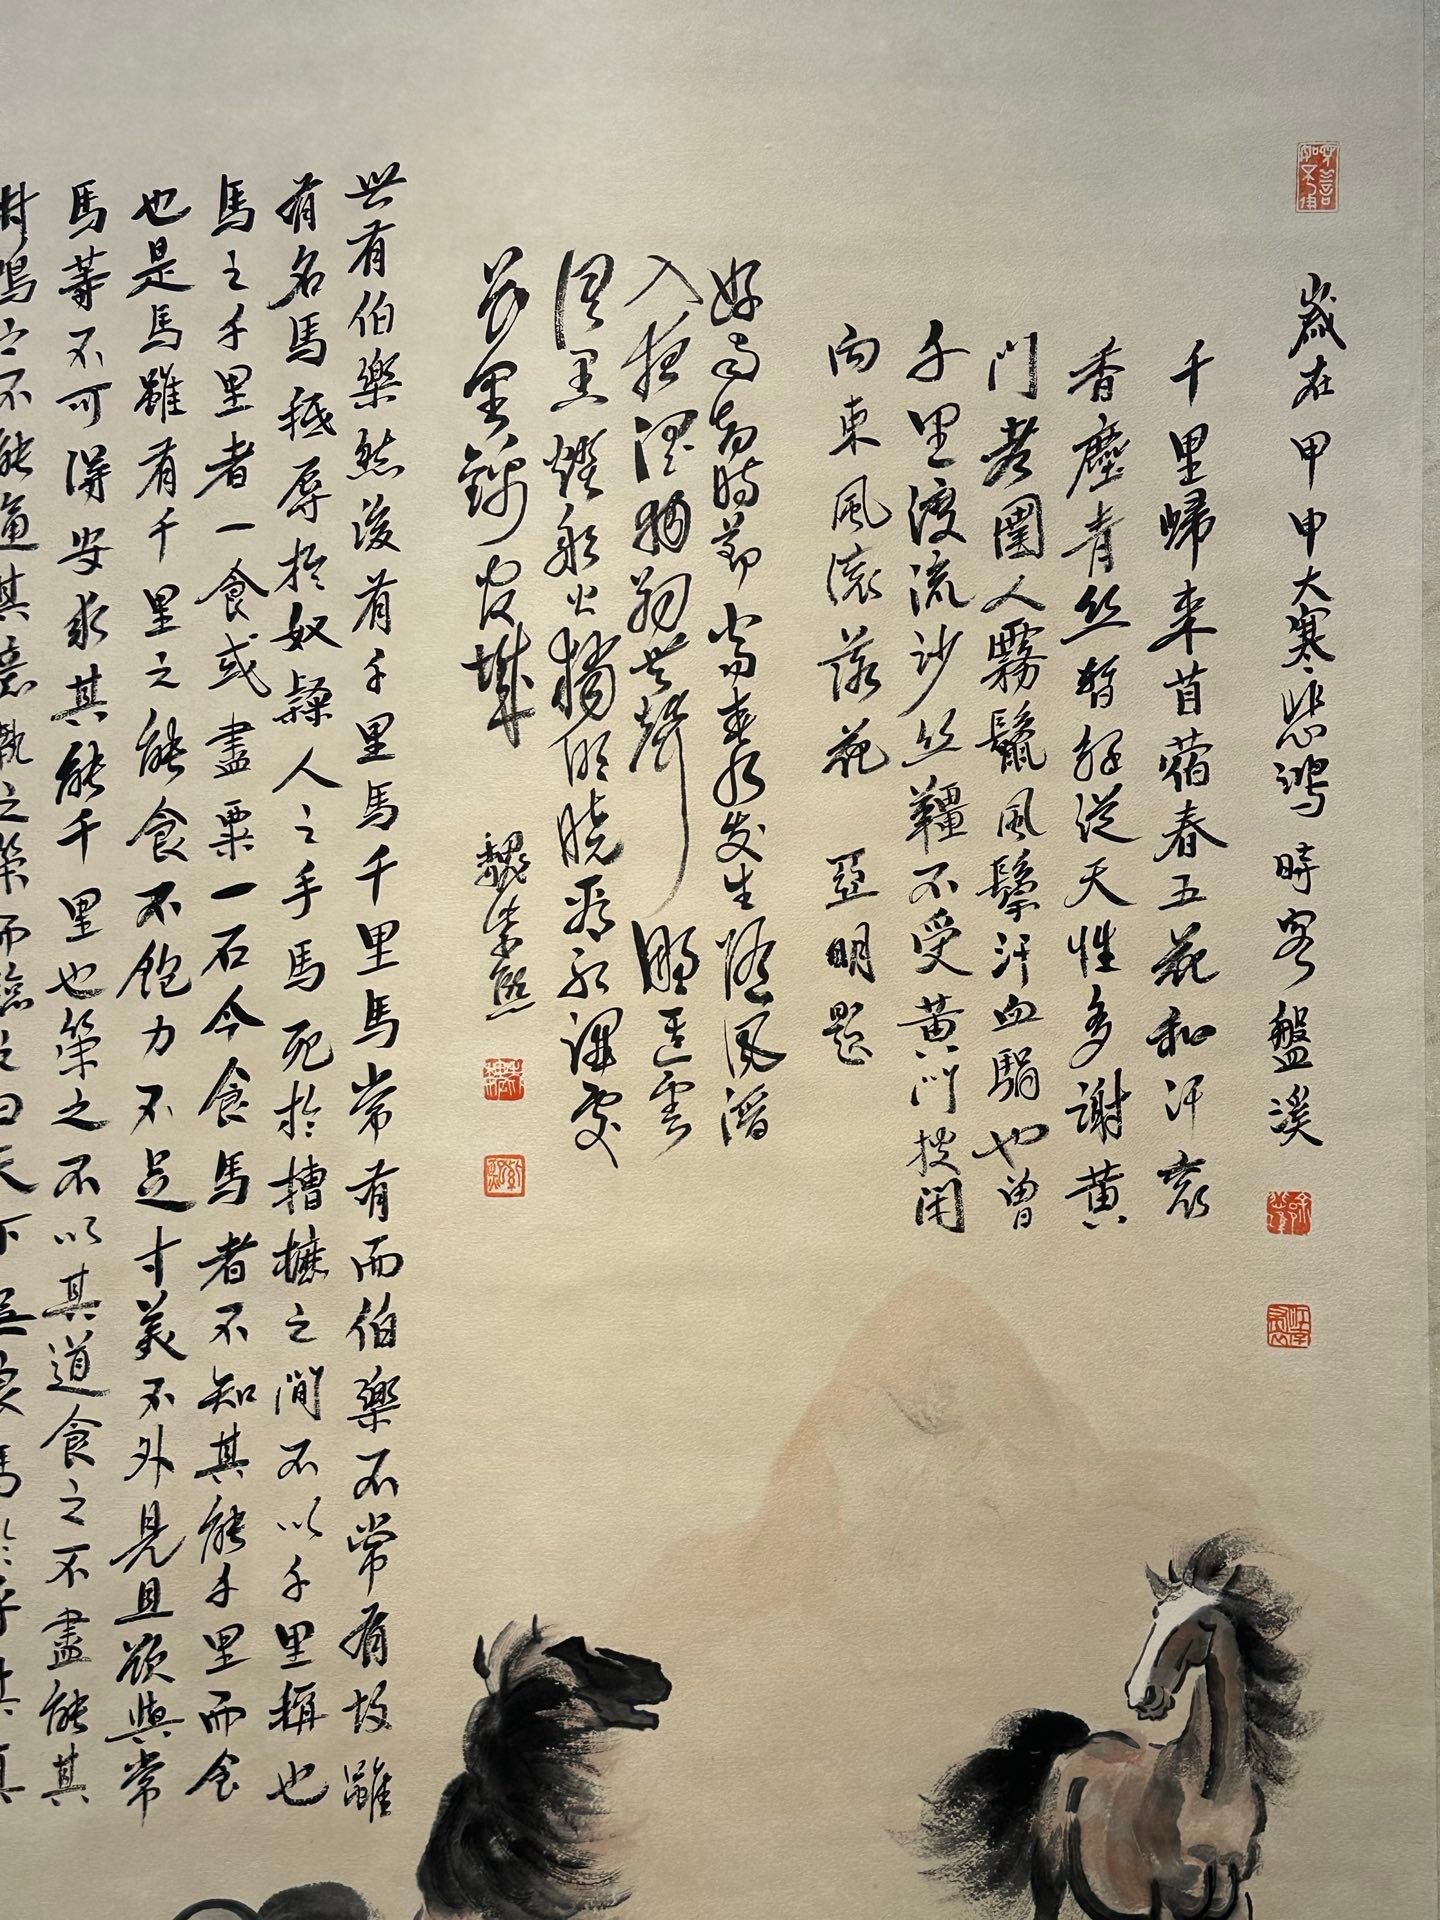 歲在甲申大寒悲鴻時客盤溪
千里歸来苜蓿春五花和汗衮
香塵青丝暫解從天性多謝黄
門若圉人霧鬣风鬃汗血騧也曾
千里渡流沙丝韁不受黄门技闲
向東風滚落花 亞明題
好雨知時節當春乃发生随风潜
入夜潤物細無聲野徑雲
俱黑船火獨明晓看红濕處
花重錦官城 魏紫熙
世有伯樂然後有千里馬千里馬常有而伯樂不常有故雖
有名馬秪辱於奴隸人之手馬死於槽櫪之間不以千里稱也
馬之千里者一食或盡粟一石今食馬者不知其能千里而食
也是馬雖有千里之能食不飽力不足才美不外見且欲與常
馬等不可得安求其能千里也策之不以其道食之不盡能其
材鳴之不能通其意執之策而臨之曰天下無良馬於乎其真